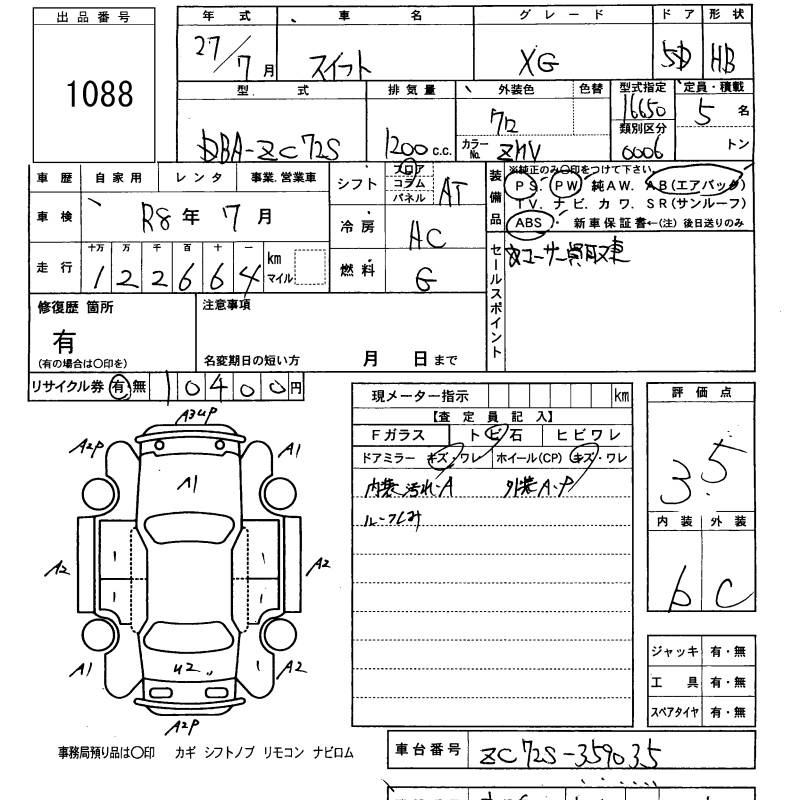 出品番号
1088
年式 車名 グレード ドア 形状
27/7月 スイフト XG 5D HB
型式 排気量 外装色 色替 型式指定 定員・積載
DBA-ZC72S 1200c.c. クロ 16650 5名
カラーNo. ZMV 類別区分 0006 トン
車歴 自家用 レンタ 事業.営業車
車検 R8年7月
走行 十万 万 千 百 十 一 km マイル
122664
シフト フロア コラム パネル AT
冷房 AC
燃料 G
装備品 ※純正のみ〇印をつけて下さい。
PS. PW 純AW. AB(エアバッグ)
TV. ナビ. カワ. SR(サンルーフ)
ABS 新車保証書←(注) 後日送りのみ
セールスポイント
ユーザー買取車
修復歴 箇所 注意事項
有
(有の場合は〇印を) 名変期日の短い方 月 日まで
リサイクル券 有 無 10400円
現メーター指示 km
【査定員記入】
Fガラス トビ石 ヒビワレ
ドアミラー キズ・ワレ ホイール(CP) キズ・ワレ
内装汚れ・A 外装A・P
評価点
3.5
内装 外装
b C
A3UP
A2P A1
A1
A2 1 1 A2
1 1
A1 U2 1 A2
A2P
ジャッキ 有・無
工具 有・無
スペアタイヤ 有・無
事務局預り品は〇印 カギ シフトノブ リモコン ナビロム
車台番号 ZC72S-359035